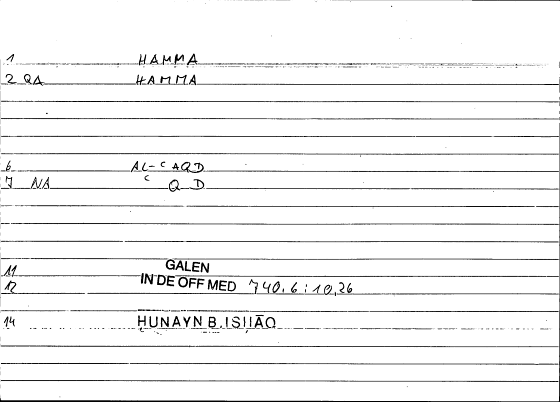 1 HAMMA
2 QA HAMMA
6 AL-ᶜAQD
7 NA ᶜ Q D
11 GALEN
12 IN DE OFF MED 740.6:10,26
14 ḤUNAYN B. ISḤĀQ